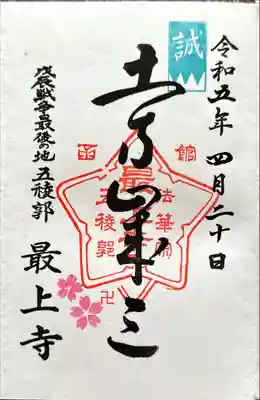 令和五年 四月二十日
誠
土方歳三
函館
法華宗
五稜郭
卍
戊辰戦争最後の地 五稜郭
最上寺